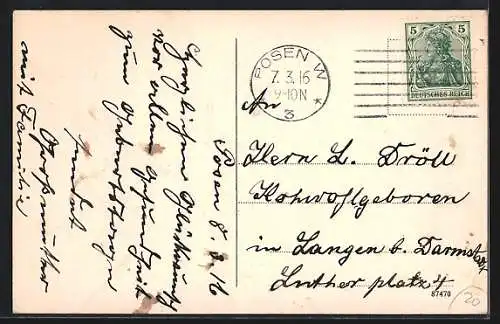 Posen 8.3.16
Herzlichen Glückwunsch
vor allem Gesundheit
zum Geburtstage
sendet
Großmutter
mit Familie
POSEN W
7.3.16
9-10N
*
3
5 5
DEUTSCHES REICH
An
Herrn L. Dröll
Hohwohlgeboren
in Langen b. Darmstadt
Lutherplatz 4
87470
20